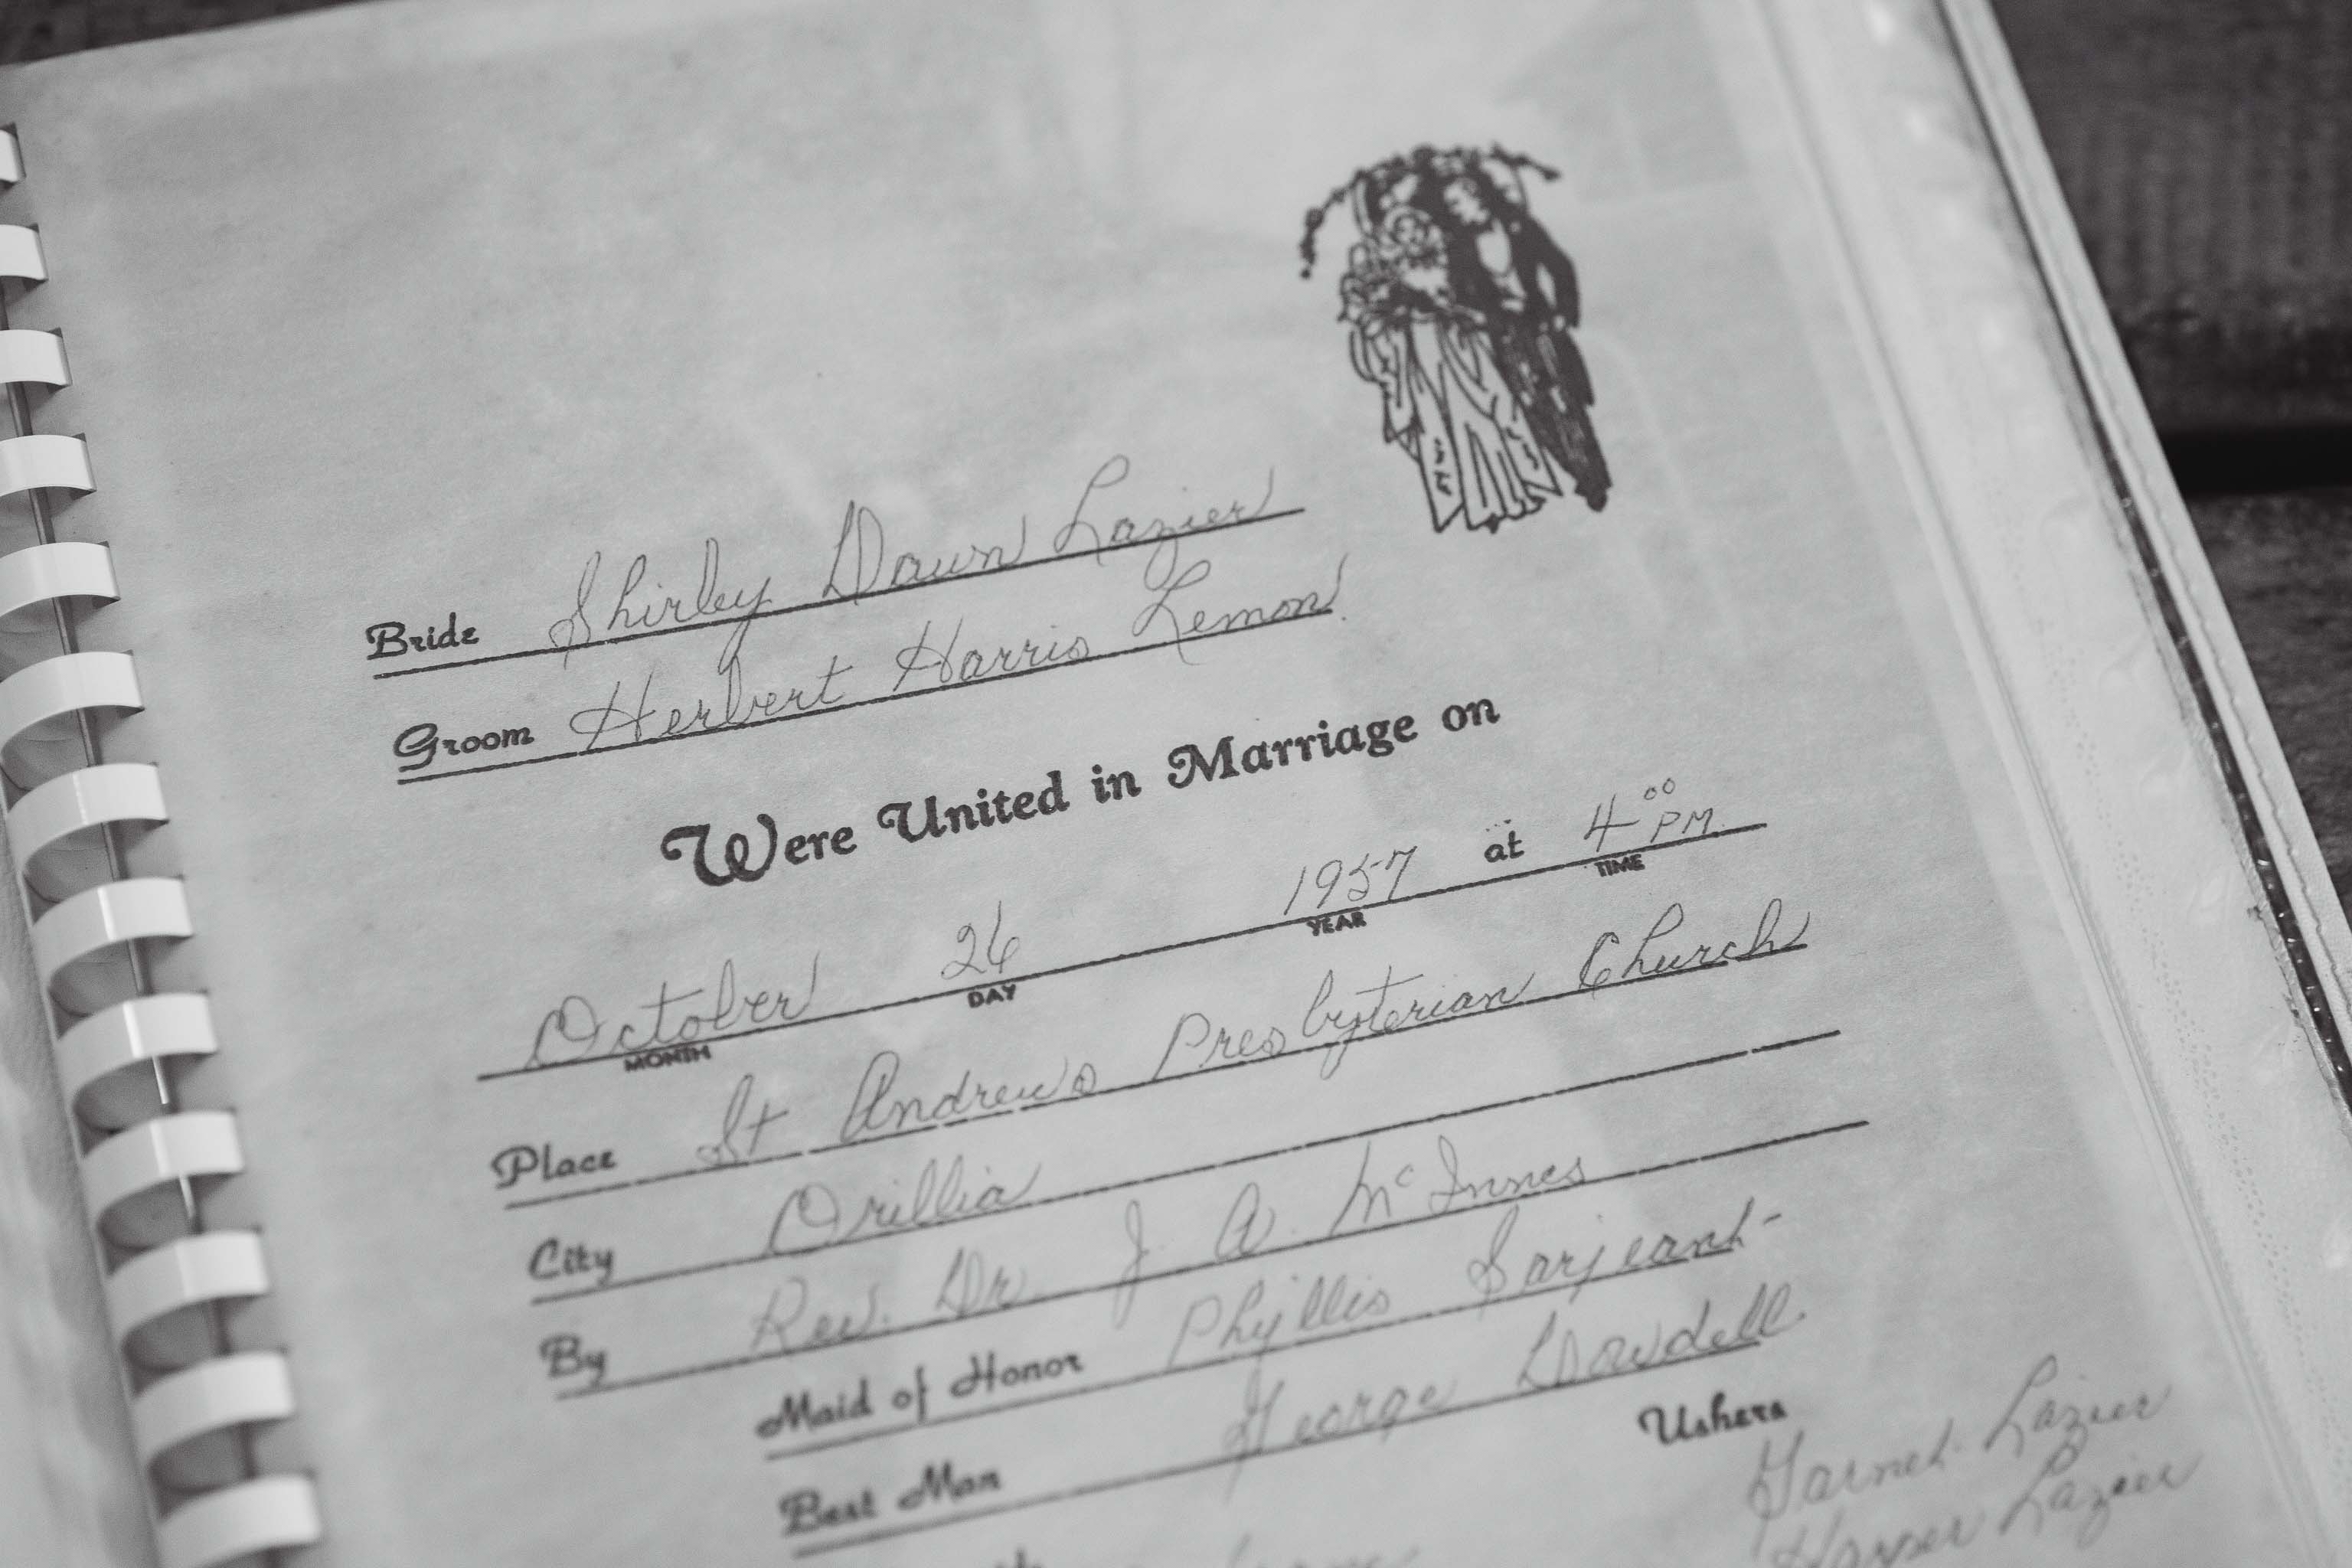 Bride Shirley Dawn Lazier
Groom Herbert Harris Lemon
Were United in Marriage on
October 26 1957 at 4 00 PM
MONTH DAY YEAR TIME
Place St Andrews Presbyterian Church
City Orillia
By Rev. Dr. J. A. McInnes
Maid of Honor Phyllis Sarjeant
Best Man George Dowdell
Ushers
Garnet Lazier
Lazier